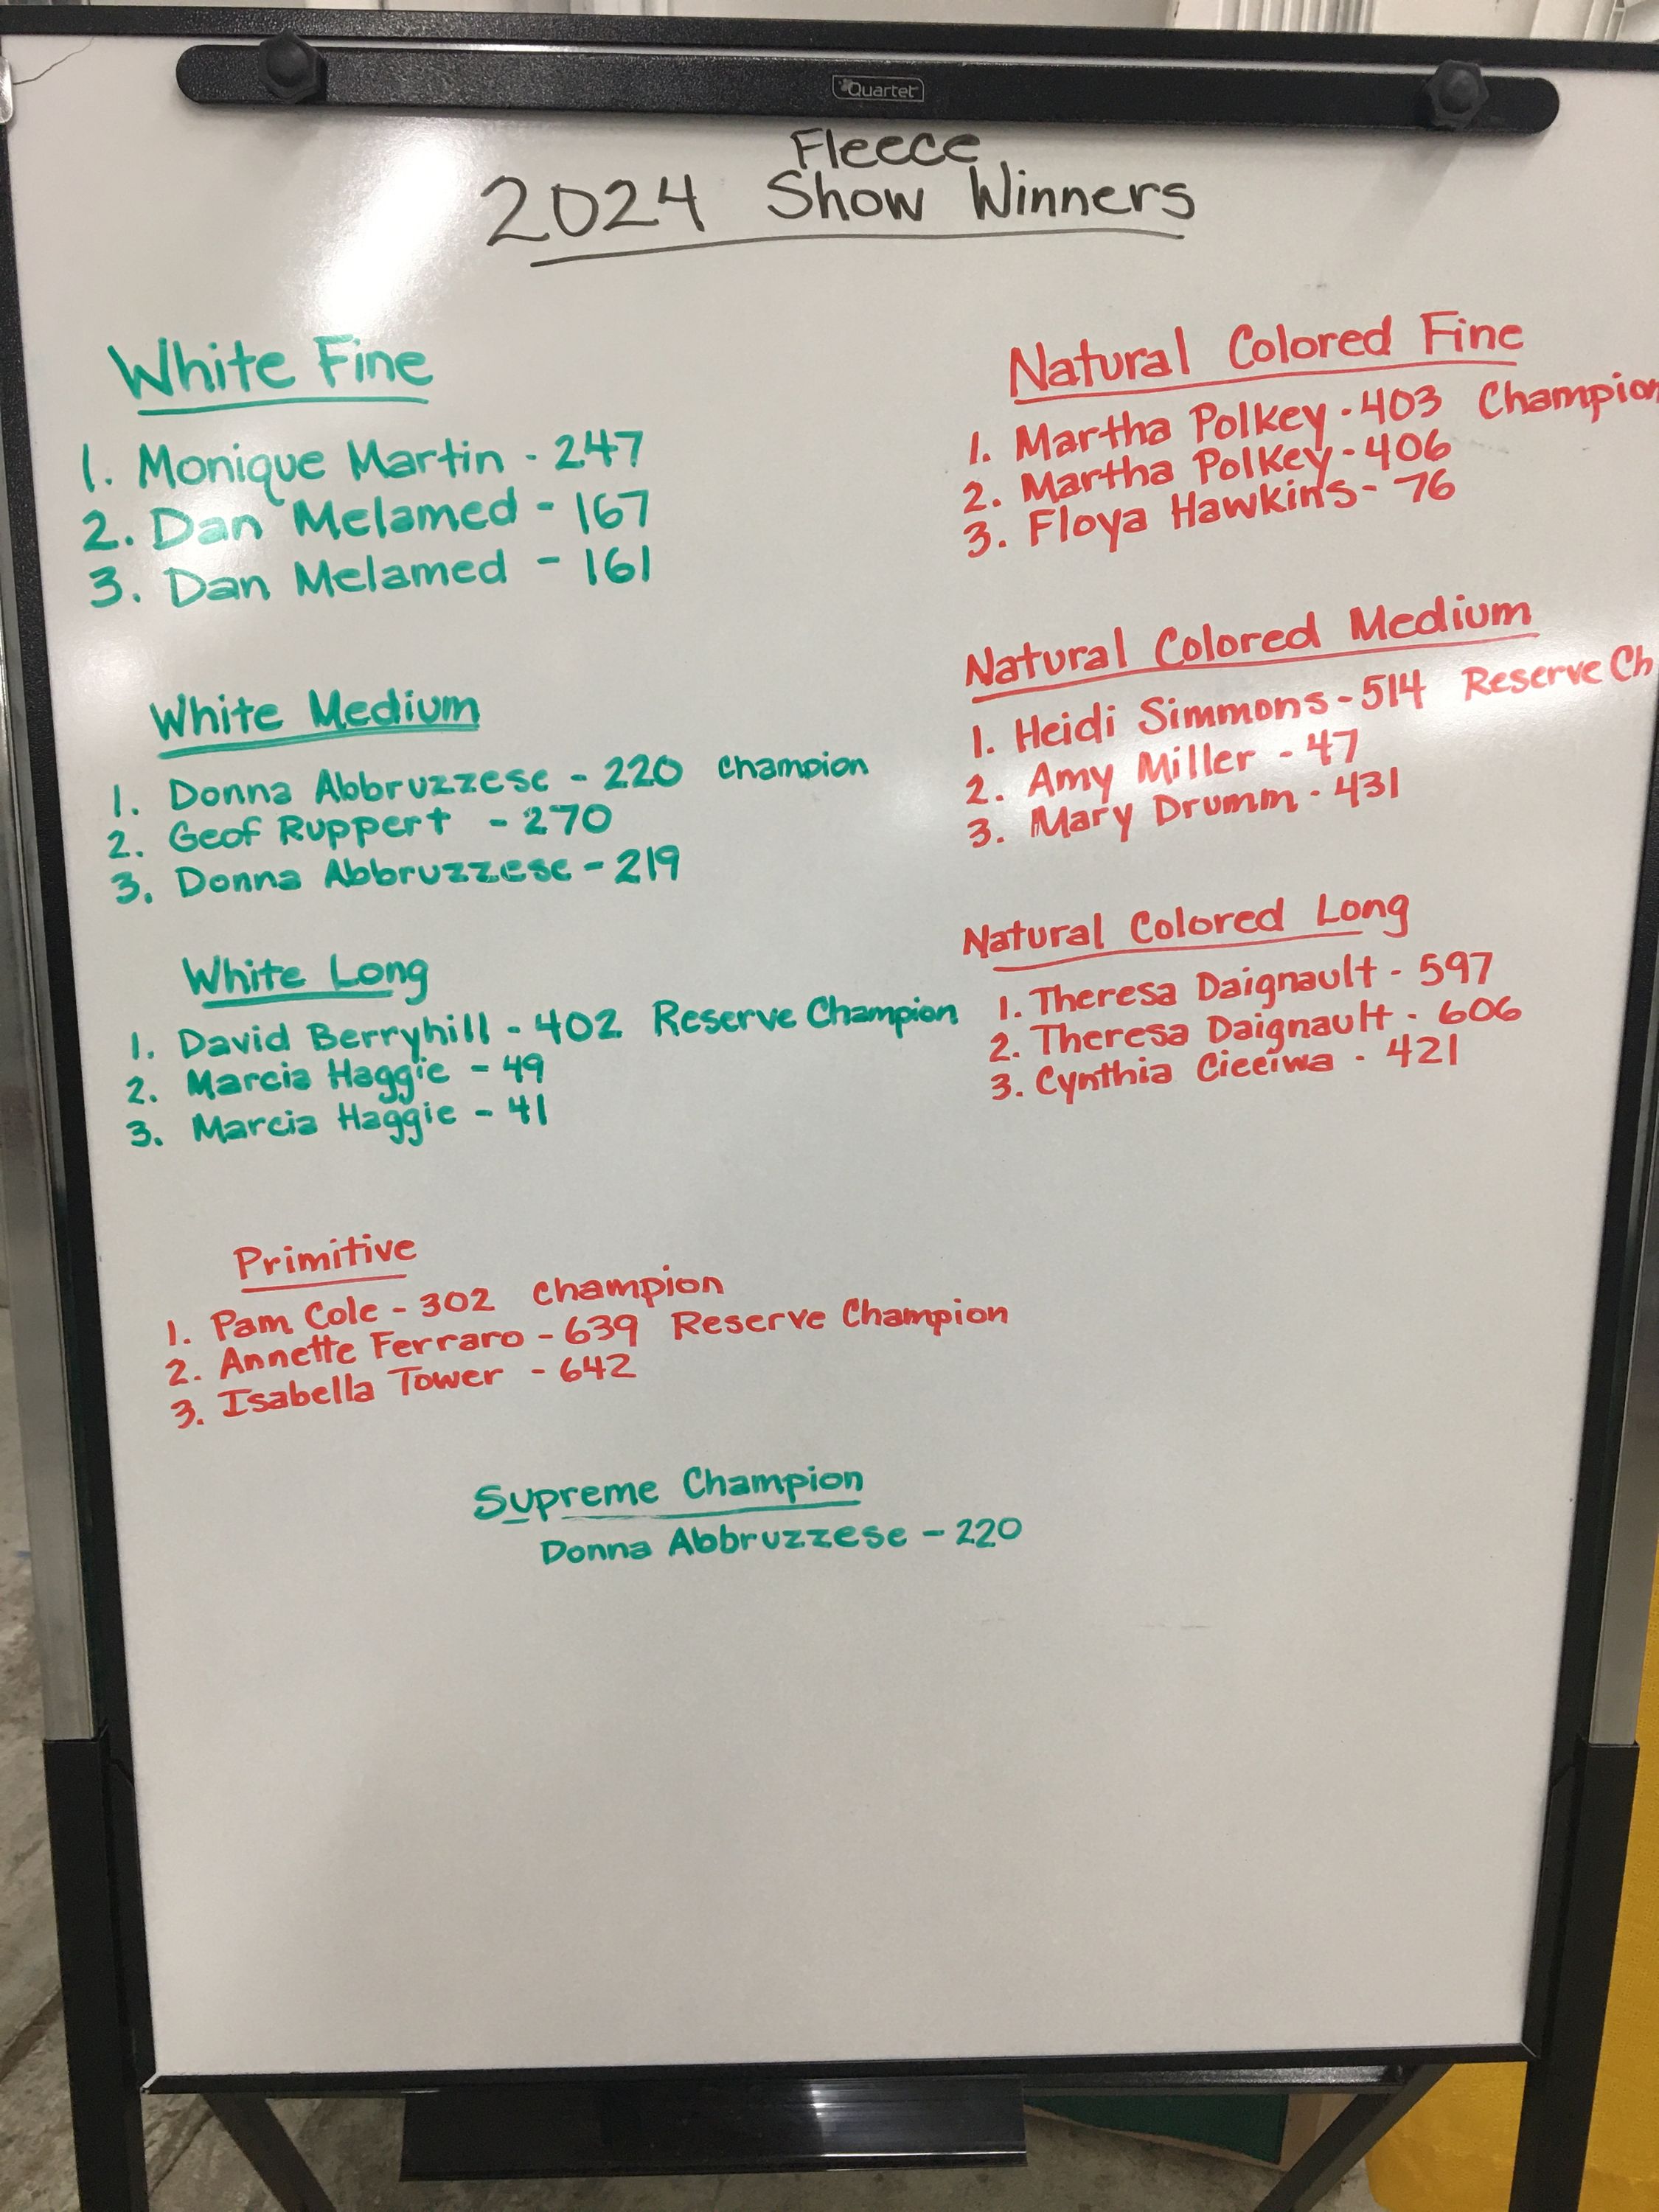 Quartet
Fleece
2024 Show Winners
White Fine
1. Monique Martin - 247
2. Dan Melamed - 167
3. Dan Melamed - 161
White Medium
1. Donna Abbruzzese - 220 Champion
2. Geof Ruppert - 270
3. Donna Abbruzzese - 219
White Long
1. David Berryhill - 402 Reserve Champion
2. Marcia Haggie - 49
3. Marcia Haggie - 41
Natural Colored Fine
1. Martha Polkey - 403 Champion
2. Martha Polkey - 406
3. Floya Hawkins - 76
Natural Colored Medium
1. Heidi Simmons - 514 Reserve Ch
2. Amy Miller - 47
3. Mary Drumm - 431
Natural Colored Long
1. Theresa Daignault - 597
2. Theresa Daignault - 606
3. Cynthia - 421
Primitive
1. Pam Cole - 302 Champion
2. Annette Ferraro - 639 Reserve Champion
3. Isabella Tower - 642
Supreme Champion
Donna Abbruzzese - 220